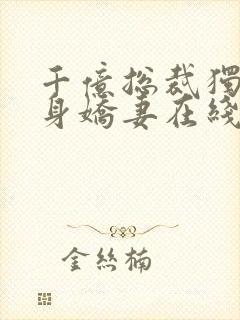 千億总裁獨
身嬌妻在綫
金絲楠